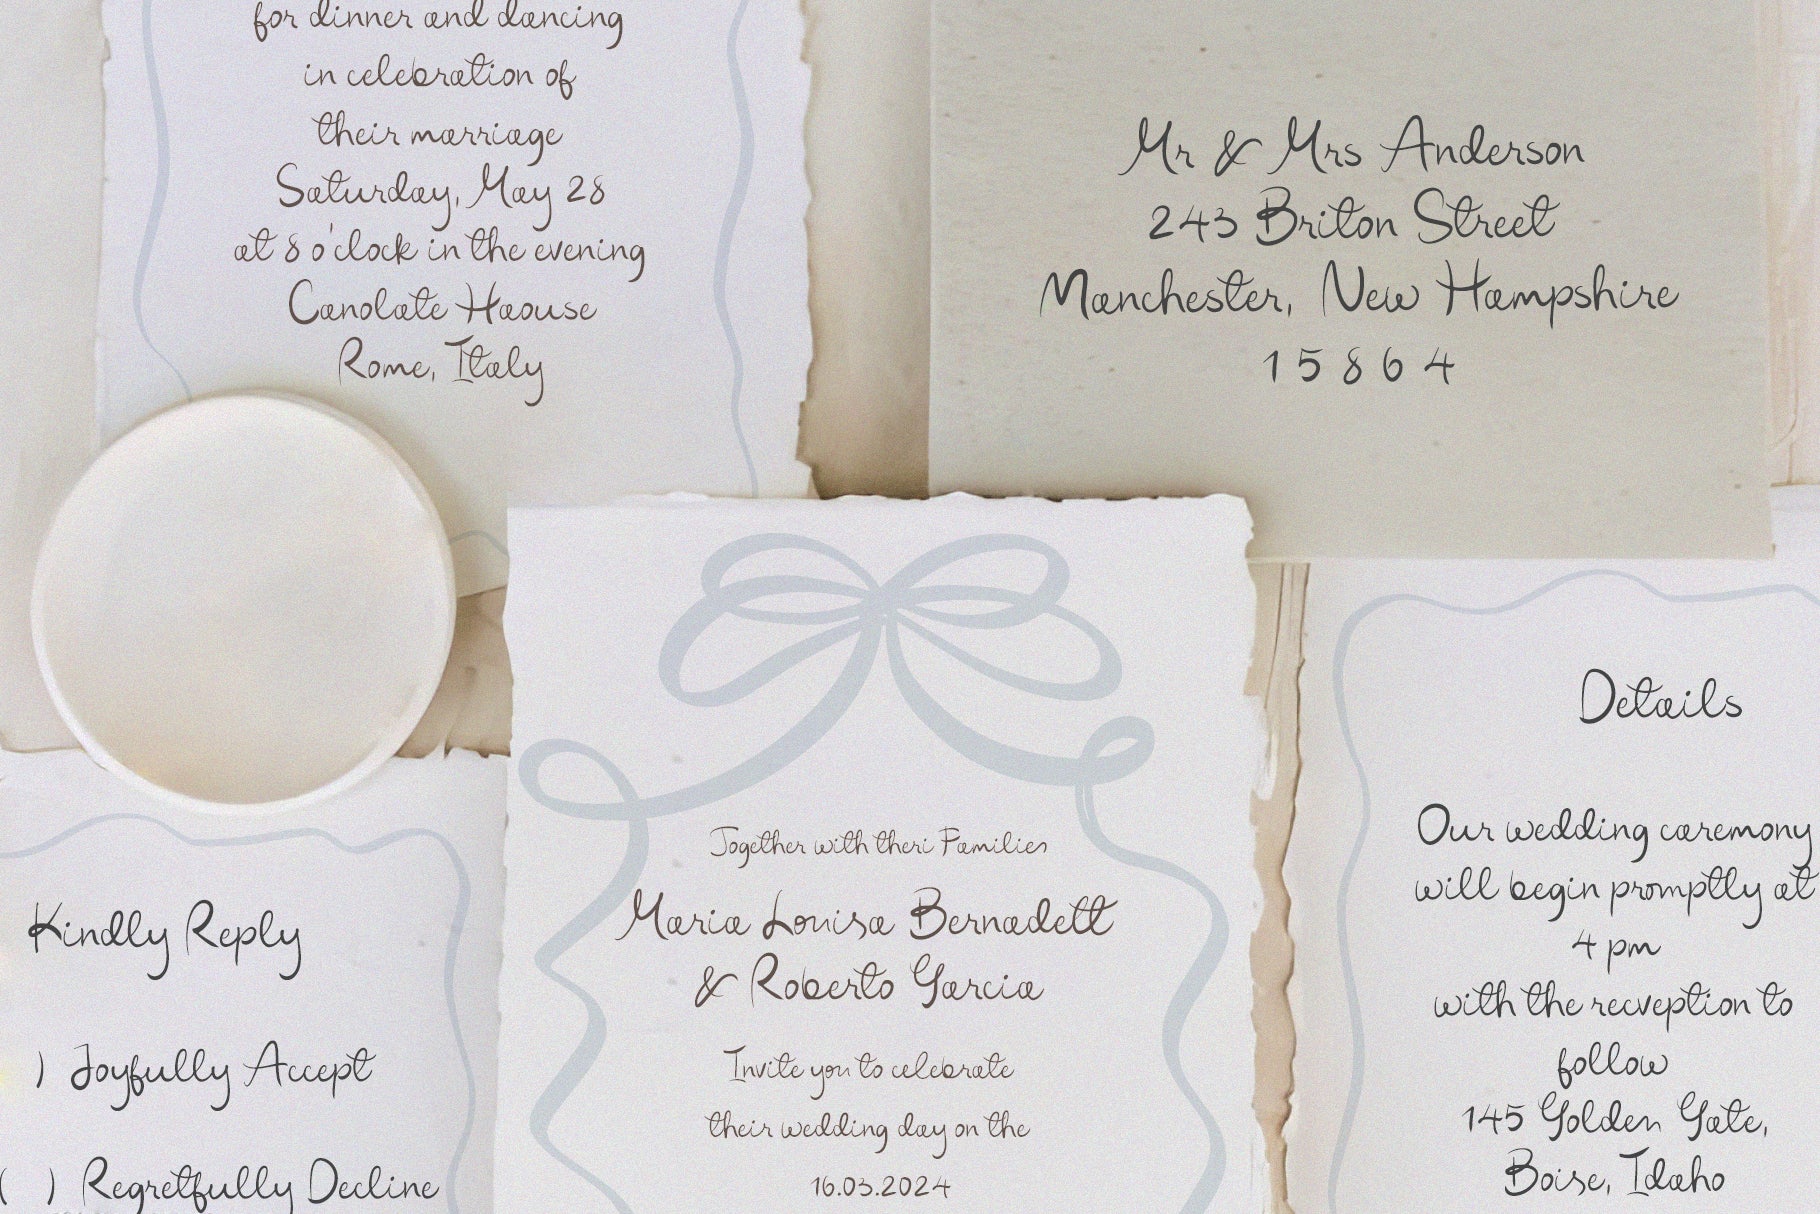 for dinner and dancing
in celebration of
their marriage
Saturday, May 28
at 8 o'clock in the evening
Canolate Haouse
Rome, Italy
Mr & Mrs Anderson
243 Briton Street
Manchester, New Hampshire
15864
Together with theri Families
Maria Louisa Bernadett
& Roberto Garcia
Invite you to celebrate
their wedding day on the
16.03.2024
Kindly Reply
) Joyfully Accept
( ) Regretfully Decline
Details
Our wedding caremony
will begin promptly at
4 pm
with the recveption to
follow
145 Golden Gate,
Boise, Idaho